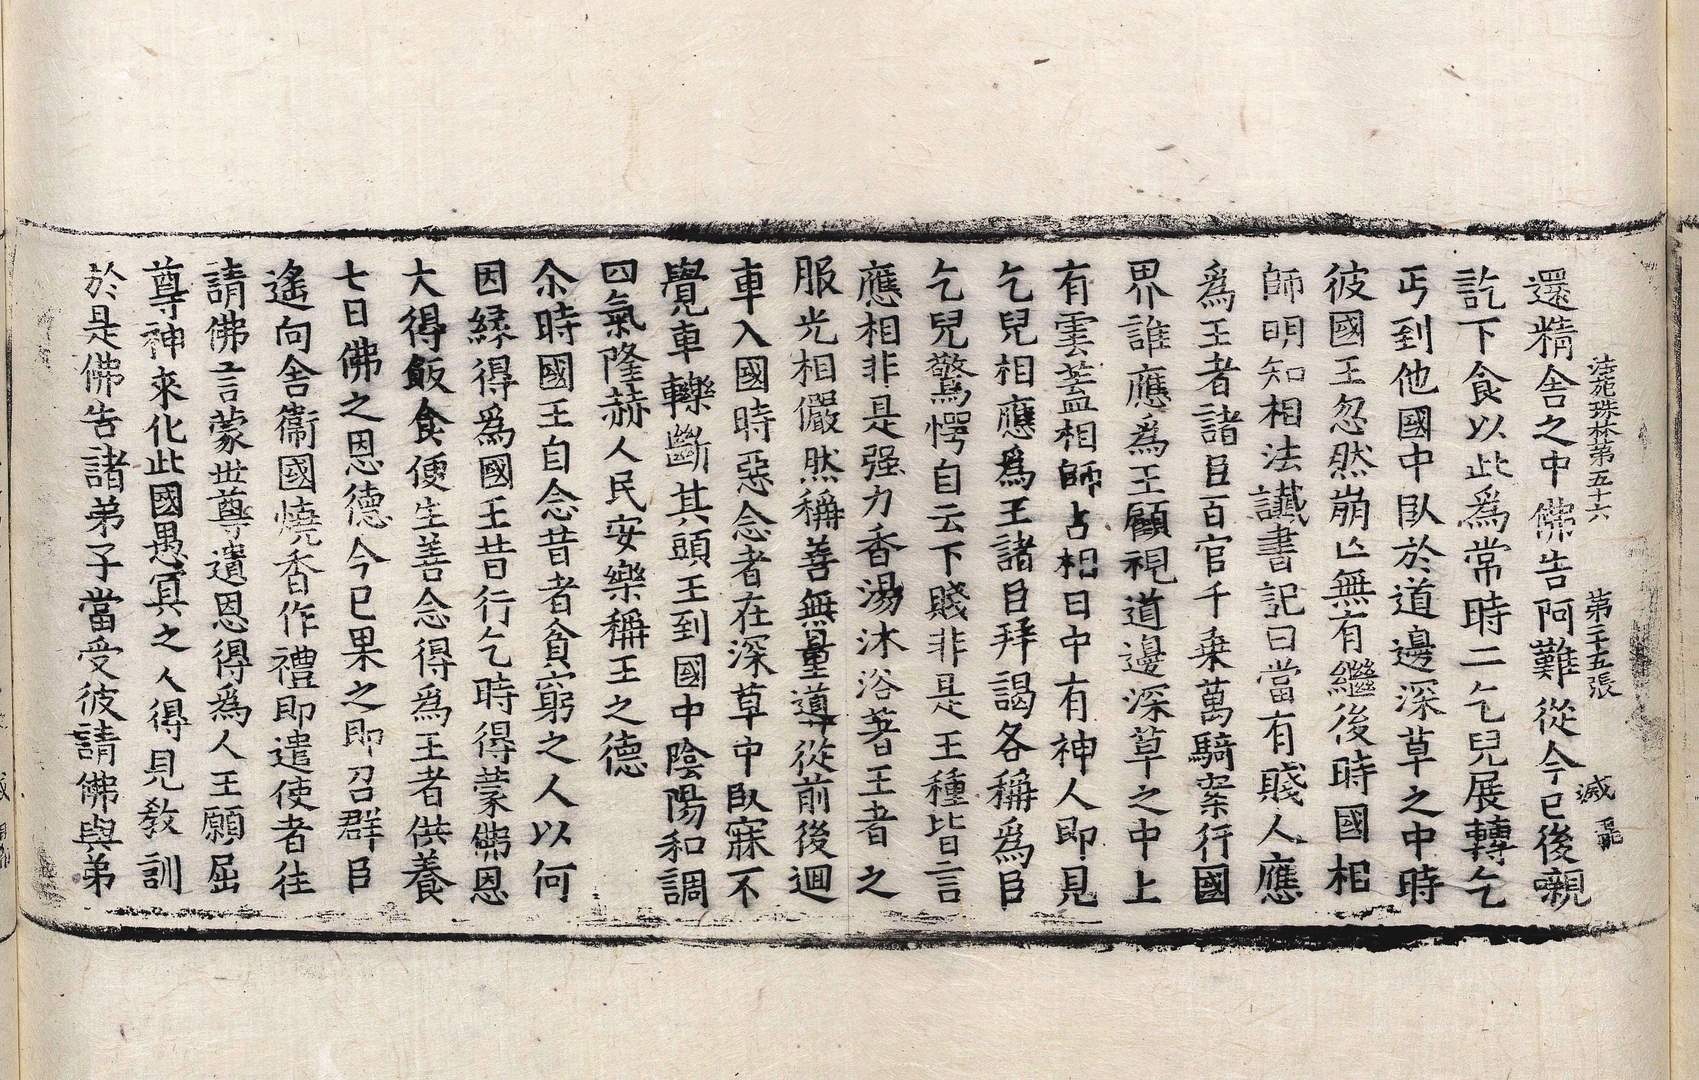 法苑珠林第五十六　第二十五張
還精舍之中佛告阿難從今已後嚫
訖下食以此爲常時二乞兒展轉乞
丐到他國中臥於道邊深草之中時
彼國王忽然崩亾無有繼後時國相
師明知相法讖書記曰當有賤人應
爲王者諸臣百官千乗萬騎案行國
界誰應爲王顧視道邊深草之中上
有雲蓋相師占相曰中有神人即見
乞兒相應爲王諸臣拜謁各稱爲臣
乞兒驚愕自云下賤非是王種皆言
應相非是强力香湯沐浴著王者之
服光相儼然稱善無量導從前後迴
車入國時惡念者在深草中臥寐不
覺車轢斷其頭王到國中陰陽和調
四氣隆赫人民安樂稱王之德
尒時國王自念昔者貧窮之人以何
因緣得爲國王昔行乞時得蒙佛恩
大得飯食便生善念得爲王者供養
七日佛之恩德今已果之即召群臣
遙向舍衞國燒香作禮即遣使者往
請佛言蒙世尊遺恩得爲人王願屈
尊神來化此國愚冥之人得見教訓
於是佛告諸弟子當受彼請佛與弟